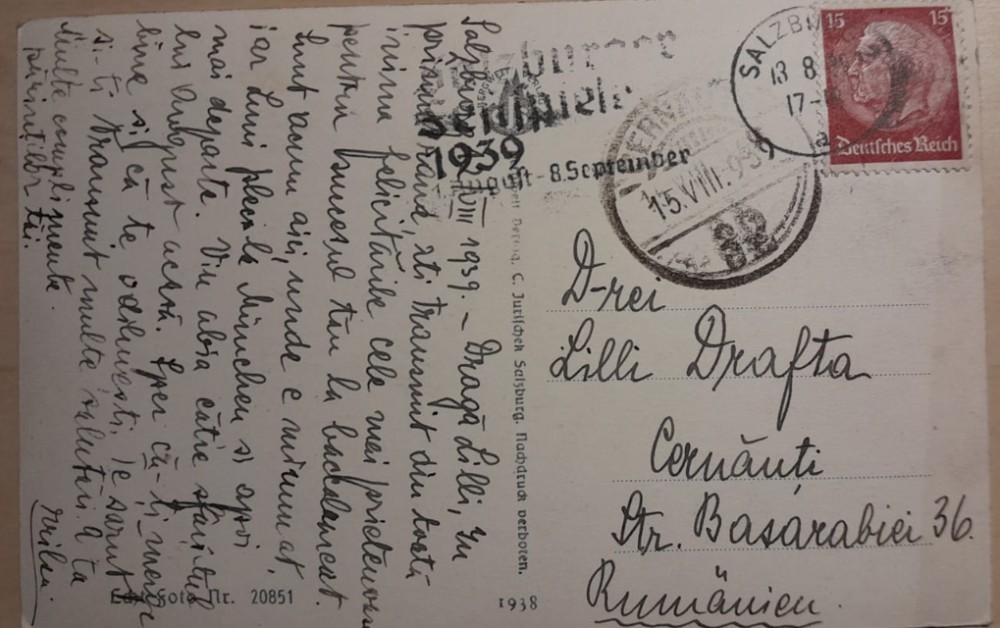 Salzburg, VIII 1939. – Dragă Lilli, În
rând, îți transmit din toată
inima felicitările cele mai prietenoase
pentru succesul tău la bacalaureat.
Sunt acum aici, unde e minunat,
iar Luni plec la München și apoi
mai departe. Viu abia către sfârșitul
lui August acasă. Sper că-ți merge
bine și că te odihnești, te sărut
și-ți transmit multe salutări
multe complimente
părinților tăi.
Salzburger
Festspiele
1939
1. August - 8. September
SALZBURG
13 8
17-
a
15 15
Deutsches Reich
CERNĂUȚI
15.VIII.939
C. Jurischek Salzburg. Nachdruck verboten.
D-rei
Lilli Drafta
Cernăuți
Str. Basarabiei 36.
Rumänien.
Nr. 20851
1938